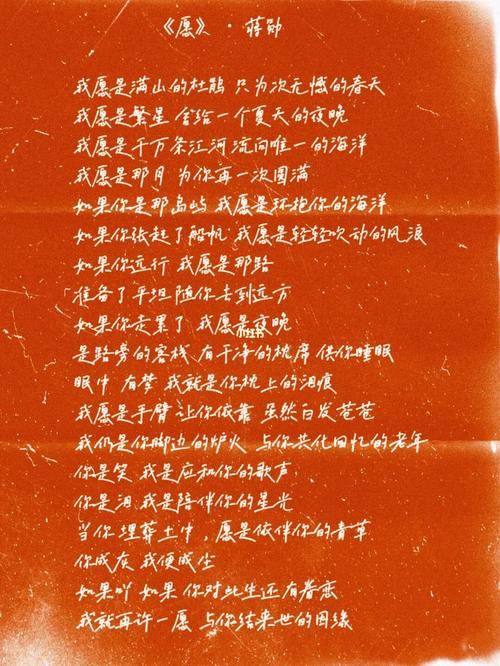 《愿》·蒋勋
我愿是满山的杜鹃 只为次无憾的春天
我愿是繁星 舍给一个夏天的夜晚
我愿是千万条江河 流向唯一的海洋
我愿是那月 为你再一次圆满
如果你是那岛屿 我愿是环抱你的海洋
如果你张起了船帆 我愿是轻轻吹动的风浪
如果你远行 我愿是那路
准备了平坦 随你去到远方
如果你走累了 我愿是夜晚
小红书
是路旁的客栈 有干净的枕席 供你睡眠
眼中 有梦 我就是你枕上的泪痕
我愿是手臂 让你依靠 虽然白发苍苍
我仍是你脚边的炉火 与你共化回忆的老年
你是笑 我是应和你的歌声
你是泪 我是陪伴你的星光
当你埋葬土中，愿是依伴你的青草
你成灰 我便成尘
如果叫 如果 你对此生还有眷恋
我就再许一愿 与你结来世的因缘